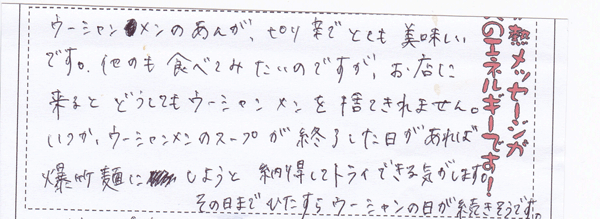 ウーシャンメンのあんが、ピリ辛でとても美味しい
です。他のも食べてみたいのですが、お店に
来るとどうしてもウーシャンメンを捨てきれません。
いつか、ウーシャンメンのスープが終了した日があれば
爆竹麺にしようと納得してトライできる気がします。
その日までひたすらウーシャンの日が続きそうです。
熱メッセージが
のエネルギーです!